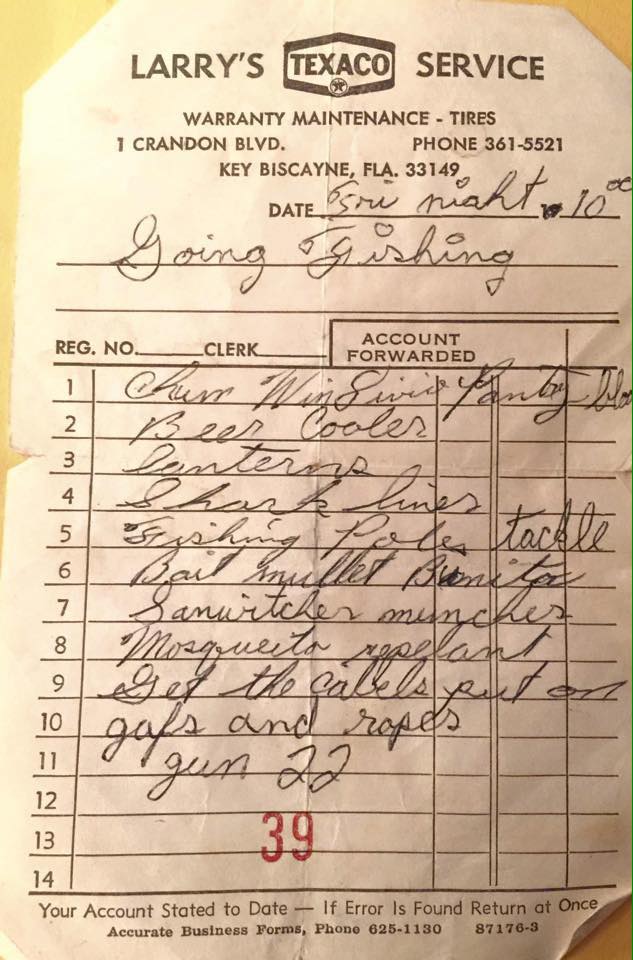 LARRY'S TEXACO SERVICE
WARRANTY MAINTENANCE - TIRES
1 CRANDON BLVD. PHONE 361-5521
KEY BISCAYNE, FLA. 33149
DATE Fri night 10 00
Going Fishing
REG. NO. CLERK ACCOUNT FORWARDED
1 Chum Winn Dixie Pantry
2 Beer Cooler
3 lanterns
4 Shark lines
5 Fishing Poles tackle
6 Bait mullet Bonita
7 Sanwitches munches
8 Mosqueito repelant
9 Get the cabels put on
10 gafs and ropes
11 gun 22
12
13 39
14
Your Account Stated to Date — If Error Is Found Return at Once
Accurate Business Forms, Phone 625-1130 87176-3